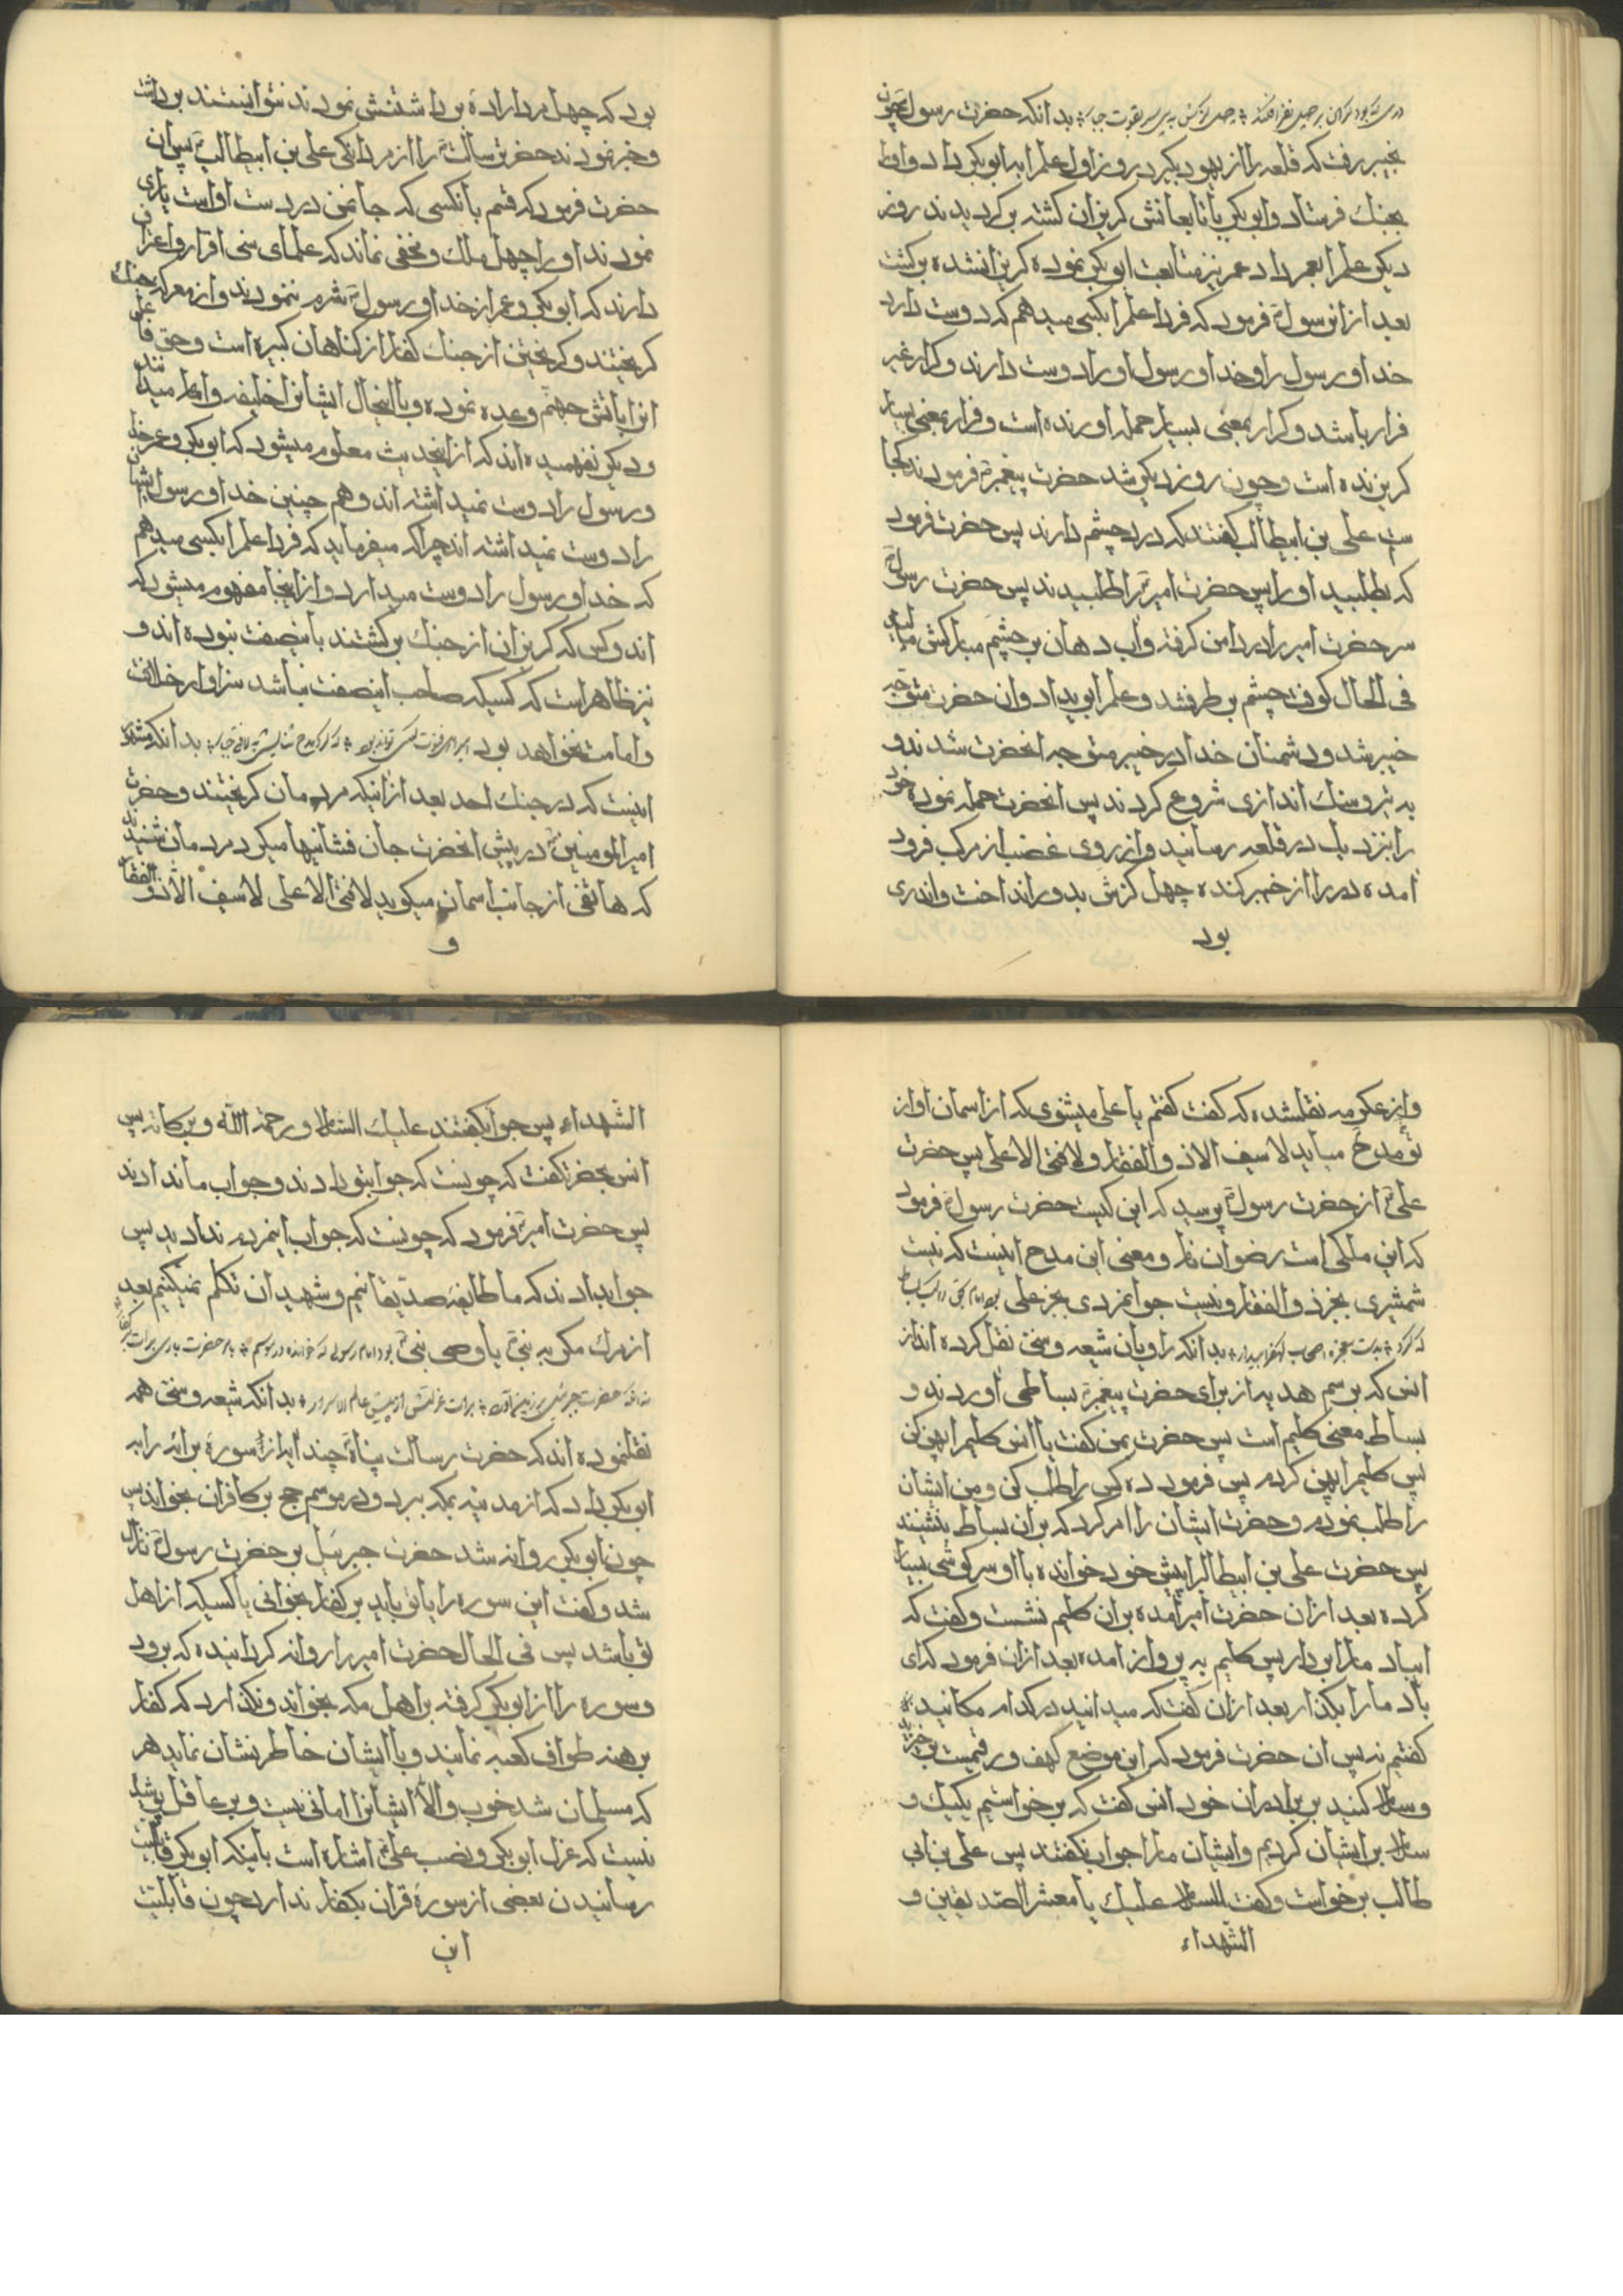 بدانکه حضرت رسول چون
بخیبر رفت که قلعه را از یهود بگیرد روز اول علم را به ابوبکر داد و او را
بجنك فرستاد و ابوبکر با تابعانش کریزان کشته برکردیدند روز
دیکر علم را بعمر داد عمر نیز متابعت ابوبکر نموده کریزان شده برکشت
بعد از ان رسول فرمود که فردا علم را بکسی میدهم که دوست دارد
خدا و رسول را و خدا و رسول او را دوست دارند و کرار غیر
فرار باشد و کرار بمعنی بسیار حمله اورنده است و فرار بمعنی بسیار
کریزنده است و چون روز دیکر شد حضرت پیغمبر فرمودند کجا
ست علی بن ابیطالب کفتند که درد چشم دارند پس حضرت فرمود
که بطلبید او را پس حضرت امیر را طلبیدند پس حضرت رسول
سر حضرت امیر را در دامن کرفته و اب دهان بر چشم مبارکش مالید
فی الحال کوفت چشم بر طرف شد و علم را بوی داد و ان حضرت متوجه
خیبر شد و دشمنان خدا در خیبر متوجه انحضرت شدند و
به تیر و سنك اندازی شروع کردند پس انحضرت حمله نموده خود
را بنزدیك در قلعه رسانید و از روی غضب از مرکب فرود
امده در را از خیبر کنده چهل کز پش بدور انداخت و ان دری
بود
بود که چهل مرد اراده برداشتنش نمودند نتوانستند برداشت
و خبر نمودند حضرت رسالت را از مردانکی علی بن ابیطالب پس ان
حضرت فرمود که قسم بانکسی که جان من در دست اواست یاری
نمودند او را چهل ملك و مخفی نماند که علمای سنی اقرار و اعتراف
دارند که ابوبکر و عمر از خدا و رسول شرم ننمودند و از معرکه جنك
کریختند و کریختن از جنك کفار از کناهان کبیره است و حق تعالی
انرا باتش جهنم وعده نموده و با اینحال ایشانرا خلیفه و امام میدانند
و دیکر نفهمیده اند که از اینحدیث معلوم میشود که ابوبکر و عمر خدا
و رسول را دوست نمیداشته اند و هم چنین خدا و رسول ایشان
را دوست نمیداشته اند چرا که میفرماید که فردا علم را بکسی میدهم
که خدا و رسول را دوست میدارد و از اینجا مفهوم میشود که
اندو کس که کریزان از جنك برکشتند باینصفت نبوده اند و
نیز ظاهر است که کسیکه صاحب اینصفت نباشد سزاوار خلافت
و امامت نخواهد بود بدانکه مشهور
اینست که در جنك احد بعد از انیکه مردمان کریختند و حضرت
امیرالمومنین در پیش انحضرت جان فشانیها میکرد مردمان شنیدند
که هاتفی از جانب اسمان میکوید لافتی الا علی لاسیف الا ذوالفقار
و
و از عکرمه نقلشده که کفت کفتم یا علی میشنوی که از اسمان اواز
تو مدح میاید لاسیف الا ذوالفقار و لافتی الا علی پس حضرت
علی از حضرت رسول پرسید که این کیست حضرت رسول فرمود
که این ملکی است رضوان نام و معنی این مدح اینست که نیست
شمشیری بجز ذوالفقار و نیست جوانمردی بجز علی
بدانکه راویان شیعه و سنی نقل کرده اند از
انس که برسم هدیه از برای حضرت پیغمبر بساطی اوردند و
بساط معنی کلیم است پس حضرت بمن کفت یا انس کلیم را پهن کن
پس کلیم را پهن کردم پس فرمود ده کس را طلب کن و من ایشان
را طلب نمودم و حضرت ایشان را امر کرد که بران بساط بنشینند
پس حضرت علی بن ابیطالب را پیش خود خوانده با او سرکوشی بسیار
کرده بعد از ان حضرت امیر امده بران کلیم نشست و کفت که
ایباد ما را بردار پس کلیم به پرواز امده بعد از ان فرمود که ای
باد ما را بکذار بعد از ان کفت که میدانید در کدام مکانید
کفتم نه پس ان حضرت فرمود که این موضع کهف و رقیمست برخیزید
و سلام کنید بر برادران خود انس کفت که برخواستیم یکیك و
سلام بر ایشان کردیم و ایشان ما را جواب نکفتند پس علی بن ابی
طالب برخواست و کفت السلام علیك یا معشر الصدیقین و
الشهداء
الشهداء پس جواب کفتند علیك السلام و رحمة الله و برکاته پس
انس بحضرت کفت که چونست که جواب تو دادند و جواب ما ندادند
پس حضرت امیر فرمود که چونست که جواب اینمردم ندادید پس
جواب دادند که ما طایفه صدیقانیم و شهیدان تکلم نمیکنیم بعد
از مرك مکر به نبی یا وصی نبی
بدانکه شیعه و سنی همه
نقلنموده اند که حضرت رسالت پناه چند ایه از سوره برائه را به
ابوبکر داد که از مدینه بمکه برد و در موسم حج بر کافران بخواند پس
چون ابوبکر روانه شد حضرت جبرئیل بر حضرت رسول نازل
شد و کفت این سوره را یا تو باید بر کفار بخوانی یا کسیکه از اهل
تو باشد پس فی الحال حضرت امیر را روانه کردانیده که برود
و سوره را از ابوبکر کرفته بر اهل مکه بخواند و نکذارد که کفار
برهنه طواف کعبه نمایند و با ایشان خاطر نشان نماید هر
که مسلمان شد خوب و الا ایشانرا امانی نیست و بر عاقل پوشیده
نیست که عزل ابوبکر و نصب علی اشاره است باینکه ابوبکر قابلیت
رسانیدن بعضی از سوره قران بکفار ندارد چون قابلیت
این